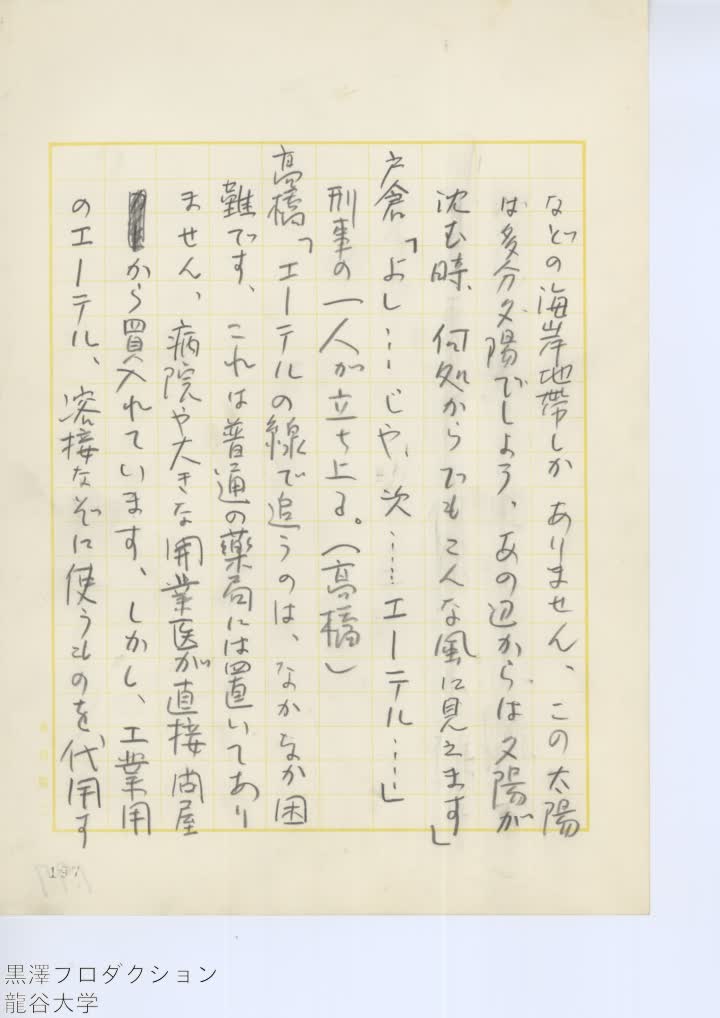 などの海岸地帯しか ありません、この太陽
は多分夕陽でしよう、あの辺からは夕陽が
沈む時、何処からでもこんな風に見えます」
戸倉「よし…じや、次……エーテル……」
刑事の一人が立ち上る。(高橋)
高橋「エーテルの線で追うのは、なかなか困
難です、これは普通の薬局には置いてあり
ません、病院や大きな開業医が直接問屋
から買入れています、しかし、工業用
のエーテル、溶接なぞに使うものを代用す
197
黒澤プロダクション
龍谷大学